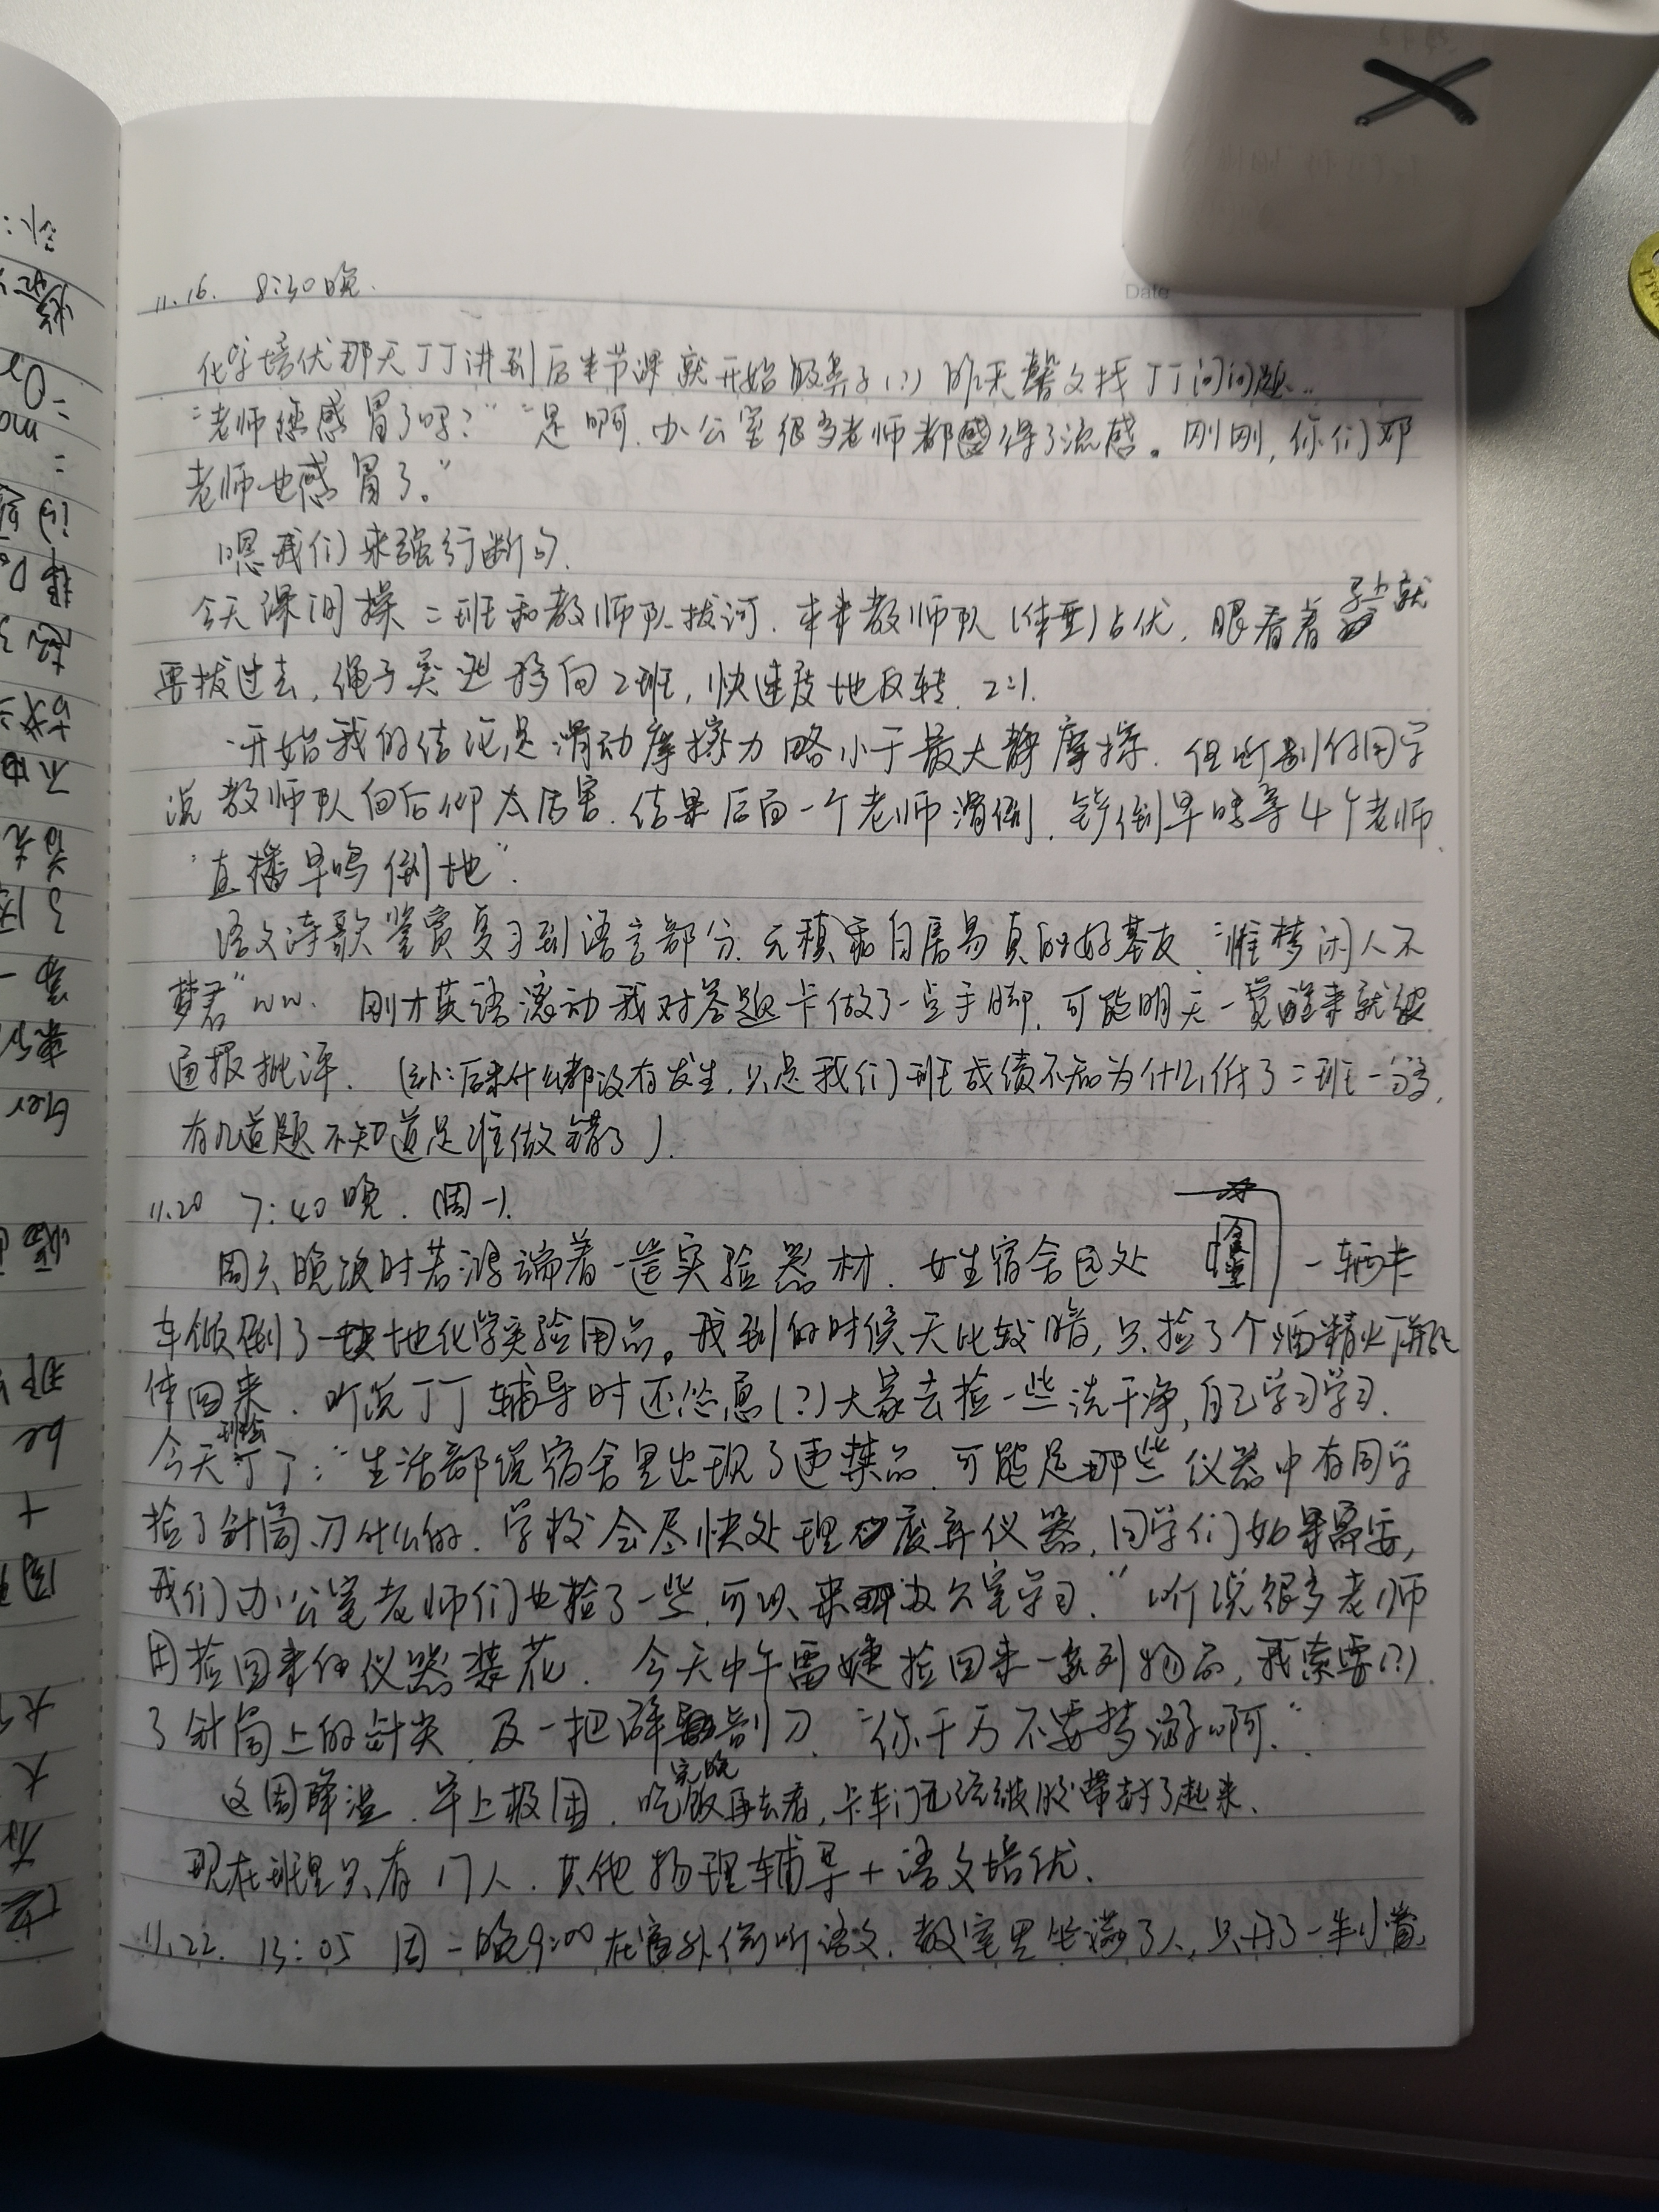 Date
11.16. 8:30晚.
化学培优那天丁丁讲到后半节课就开始吸鼻子(?) 昨天馨文找丁丁问问题..
"老师您感冒了吗?" "是啊, 办公室很多老师都得了流感。刚刚, 你们邓
老师也感冒了。"
嗯我们来强行断句.
今天课间操二班和教师队拔河. 本来教师队(体重)占优, 眼看着 就
要拔过去, 绳子突然移向2班, 快速度地反转. 2:1.
一开始我的结论是滑动摩擦力略小于最大静摩擦. 但听别的同学
说教师队向后仰太厉害, 结果后面一个老师滑倒, 倒 等4个老师.
"直播早鸣倒地".
语文诗歌鉴赏复习到语言部分. 元稹和白居易真的好基友. "惟梦闲人不
梦君"ww. 刚才英语滚动我对答题卡做了一点手脚, 可能明天一觉醒来就被
通报批评. (补: 后来什么都没有发生, 只是我们班成绩不知为什么低了二班一分多,
有几道题不知道是谁做错了).
11.20 7:40晚. (周一).
周六晚饭时若鸿端着一筐实验器材. 女生宿舍西处 一辆卡
车倾倒了一块地化学实验用品。我到的时候天比较暗, 只捡了个酒精灯
体回来. 听说丁丁辅导时还怂恿(?)大家去捡一些洗干净, 自己学习学习.
今天班会丁丁: "生活部说宿舍里出现了违禁品, 可能是那些仪器中有同学
捡了针筒、刀什么的. 学校会尽快处理废弃仪器, 同学们如果需要,
我们办公室老师们也捡了一些, 可以来办公室学习." 听说很多老师
用捡回来的仪器装花. 今天中午雷婕捡回来一系列物品, 我索要(?)
了针筒上的针尖 及一把解剖刀. "你千万不要梦游啊."
这周降温. 早上极困. 吃完晚饭再去看, 卡车门已经被胶带封了起来.
现在班里只有17人. 其他物理辅导+语文培优.
11.22. 13:05 周一晚9:00在窗外倾听语文. 教室里坐满了人, 只开了一半小窗